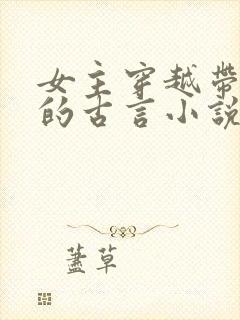 女主穿越帶
的古言小說
蓋草